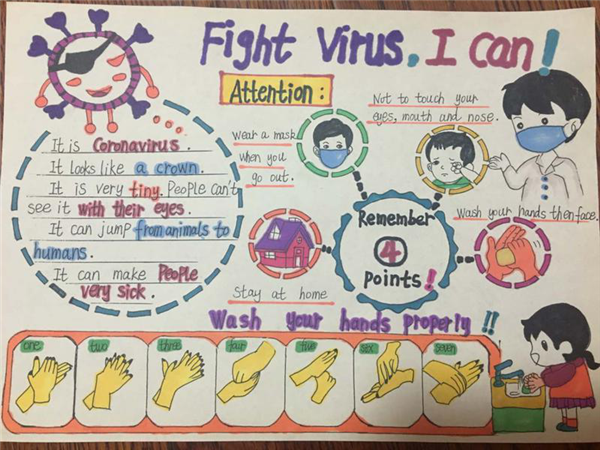 Fight Virus, I can!
Attention:
It is Coronavirus.
It looks like a crown.
It is very tiny. People can't
see it with their eyes.
It can jump from animals to
humans.
It can make People
very sick.
Wear a mask
when you
go out.
Not to touch your
eyes, mouth and nose.
Remember
4
points!
Wash your hands then face.
Stay at home
Wash your hands properly!!
one
two
three
four
five
six
seven